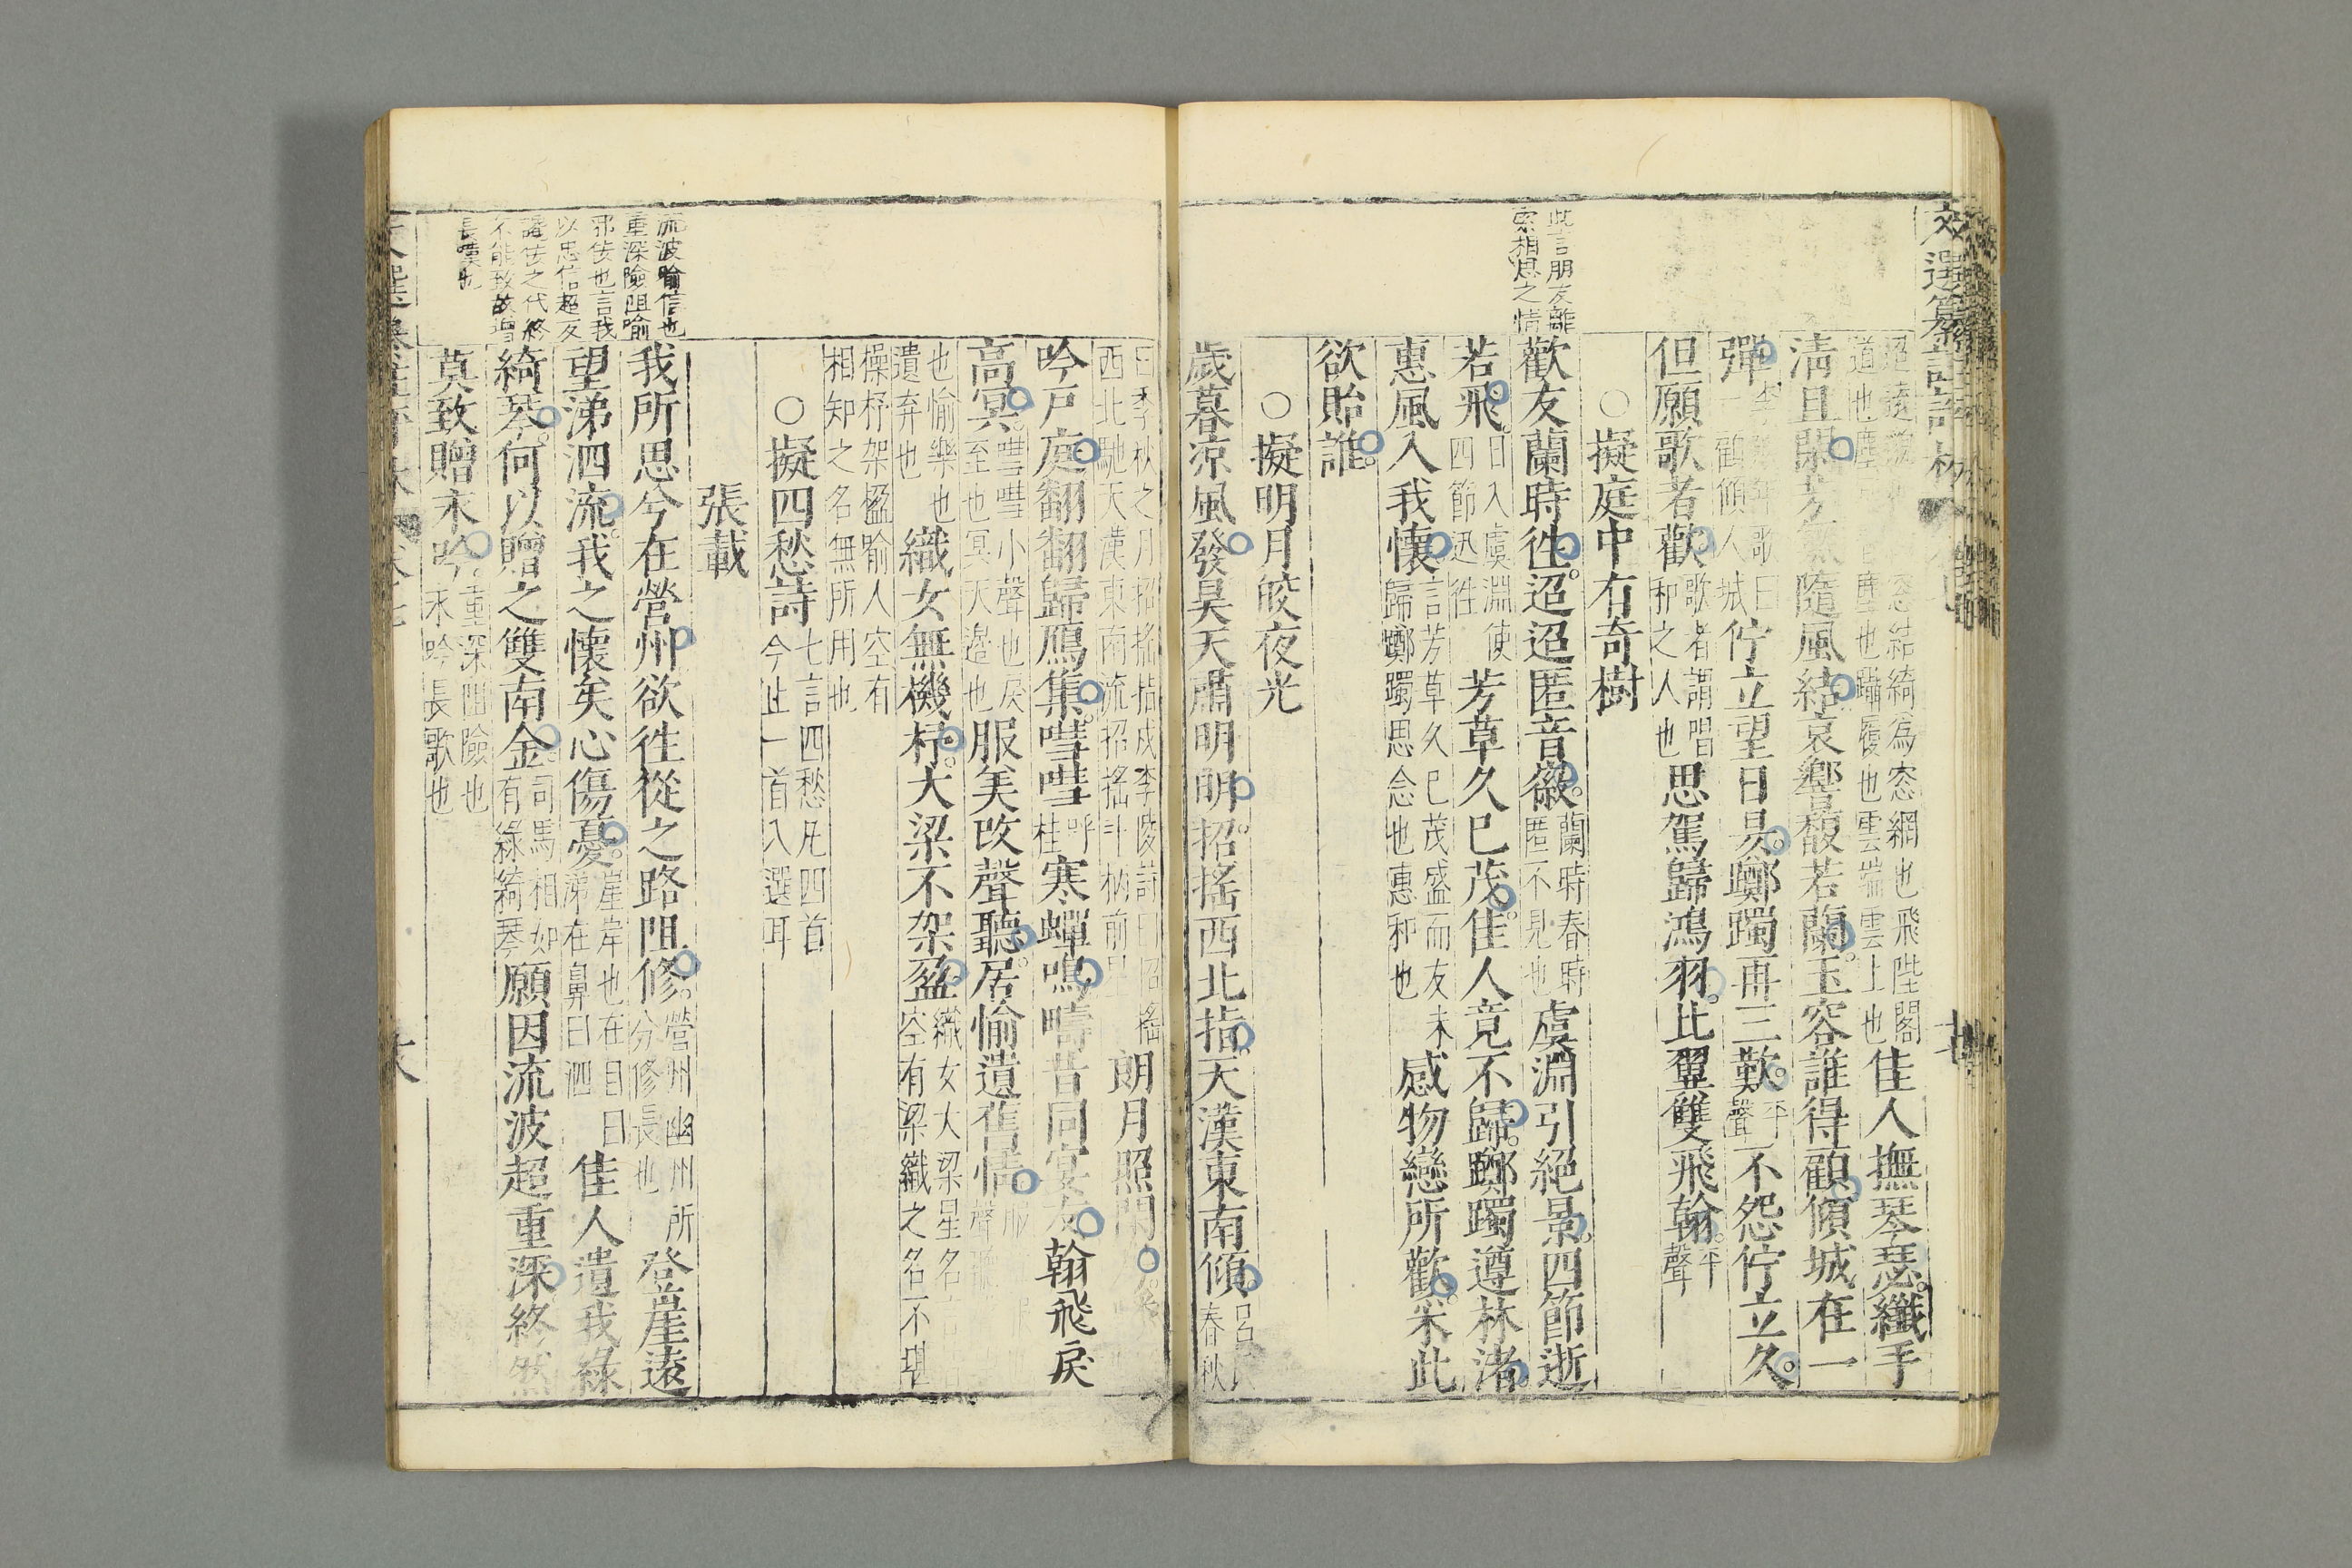 文選纂註評林
迢遠 道也 窓結綺為窓網也飛陛閣 塵也躡履也雲端雲上也 佳人撫琴瑟纖手
清且閑芳氣隨風結哀響馥若蘭玉容誰得顧傾城在一
彈 歌曰 一顧傾人城 佇立望日昃躑躅再三歎平聲不怨佇立久
但願歌者歡歌者謂唱和之人也思駕歸鴻羽比翼雙飛翰平聲
○擬庭中有奇樹
此言朋友離
索相思之情
歡友蘭時徃迢迢匿音徽蘭時春時匿不見也虞淵引絕景四節逝
若飛日入虞淵使四節迅徃芳草久已茂佳人竟不歸躑躅遵林渚
惠風入我懷言芳草久已茂盛而友未歸躑躅思念也惠和也感物戀所歡采此
欲貽誰
○擬明月皎夜光
歲暮凉風發昊天肅明明招搖西北指天漢東南傾呂氏春秋
曰季秋之月招搖指戌李陵詩曰招搖西北馳天漢東南流招搖斗柄前星 朗月照閑
吟戶庭翻翻歸鴈集嘒嘒呼桂寒蟬鳴疇昔同宴友翰飛戾
高冥嘒嘒小聲也戾至也冥天邉也服美改聲聽居愉遺舊情服 聲聽
也愉樂也遺弃也織女無機杼大梁不架盈織女大梁星名 空有梁織之名不堪
操杼架楹喻人空有相知之名無所用也
○擬四愁詩七言四愁凡四首今止一首入選耳
張載
我所思兮在營州欲徃從之路阻修營州幽州所分修長也登崖遠
望涕泗流我之懷矣心傷憂崖岸也在目曰涕在鼻曰泗佳人遺我綠
綺琴何以贈之雙南金司馬相如有綠綺琴願因流波超重深終然
莫致贈永吟重深阻險也永吟長歌也
流波喻信也
重深險阻喻
邪佞也言我
以忠信超友
讒佞之代終
不能致故增
長嘆也